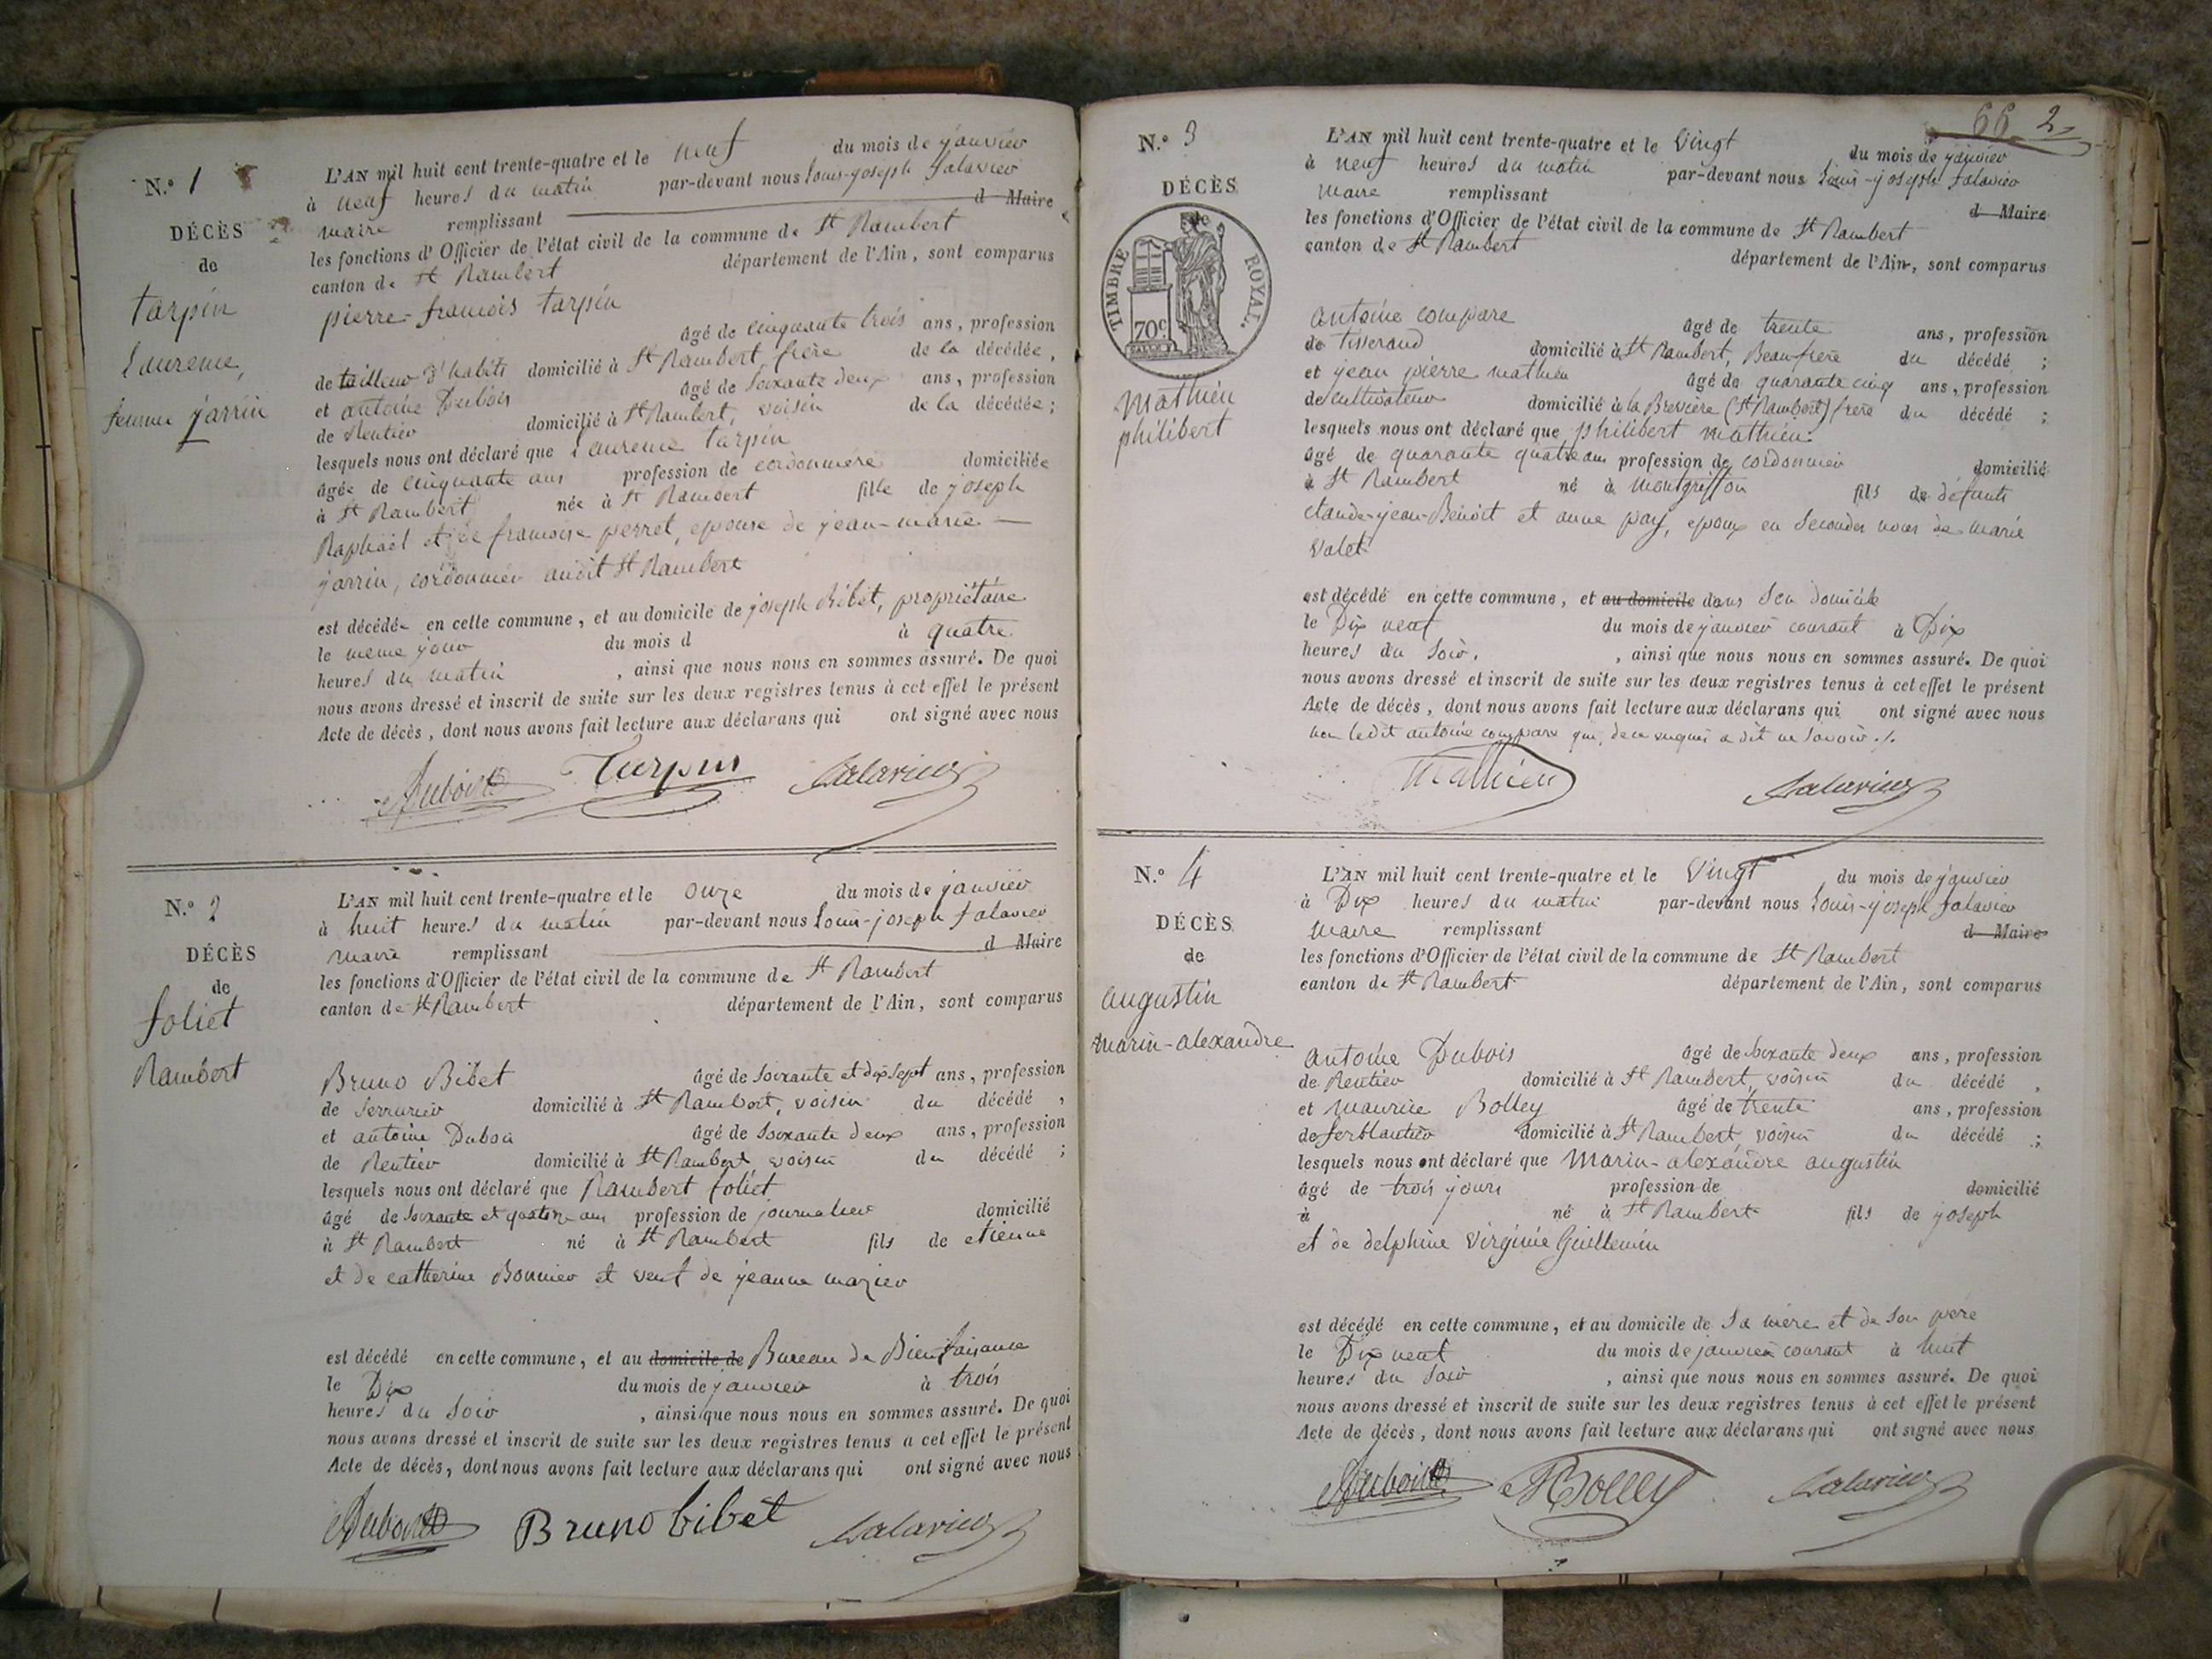 N.º 1
DÉCÈS
de
tarpin
Laurence,
femme jarrin
L'AN mil huit cent trente-quatre et le neuf du mois de janvier
à neuf heures du matin par-devant nous Louis-joseph falavier
maire remplissant d Maire
les fonctions d'Officier de l'état civil de la commune de St Rambert
canton de St Rambert département de l'Ain, sont comparus
pierre-francois tarpin âgé de cinquante trois ans, profession
de tailleur d'habits domicilié à St Rambert, frère de la décédée,
et antoine Dubois âgé de soixante deux ans, profession
de Rentier domicilié à St Rambert, voisin de la décédée;
lesquels nous ont déclaré que Laurence tarpin
âgée de cinquante ans profession de cordonniere domiciliée
à St Rambert née à St Rambert fille de joseph
Raphaël et de francoise perret, epouse de jean-marie
jarrin, cordonnier audit St Rambert
est décédée en cette commune, et au domicile de joseph Bibet, propriétaire
le meme jour du mois d à quatre
heures du matin, ainsi que nous nous en sommes assuré. De quoi
nous avons dressé et inscrit de suite sur les deux registres tenus à cet effet le présent
Acte de décès, dont nous avons fait lecture aux déclarans qui ont signé avec nous
Dubois Tarpin falavier
N.º 2
DÉCÈS
de
foliet
Rambert
L'AN mil huit cent trente-quatre et le onze du mois de janvier
à huit heures du matin par-devant nous Louis-joseph falavier
maire remplissant d Maire
les fonctions d'Officier de l'état civil de la commune de St Rambert
canton de St Rambert département de l'Ain, sont comparus
Bruno Bibet âgé de soixante et dix sept ans, profession
de serrurier domicilié à St Rambert, voisin du décédé,
et antoine Dubois âgé de soixante deux ans, profession
de Rentier domicilié à St Rambert voisin du décédé;
lesquels nous ont déclaré que Rambert foliet
âgé de soixante et quatorze ans profession de journalier domicilié
à St Rambert né à St Rambert fils de etienne
et de catherine Bonnier et veuf de jeanne mazier
est décédé en cette commune, et au domicile de Bureau de Bienfaisance
le Dix du mois de janvier à trois
heures du soir, ainsi que nous nous en sommes assuré. De quoi
nous avons dressé et inscrit de suite sur les deux registres tenus à cet effet le présent
Acte de décès, dont nous avons fait lecture aux déclarans qui ont signé avec nous
Dubois Bruno bibet falavier
66 2
N.º 3
DÉCÈS
de
TIMBRE ROYAL.
70c
mathieu
philibert
L'AN mil huit cent trente-quatre et le vingt du mois de janvier
à neuf heures du matin par-devant nous Louis-joseph falavier
maire remplissant d Maire
les fonctions d'Officier de l'état civil de la commune de St Rambert
canton de St Rambert département de l'Ain, sont comparus
antoine compare âgé de trente ans, profession
de tisserand domicilié à St Rambert, Beaufrere du décédé;
et jean pierre mathieu âgé de quarante cinq ans, profession
de cultivateur domicilié à la Brevière (St Rambert) frère du décédé;
lesquels nous ont déclaré que philibert mathieu
âgé de quarante quatre ans profession de cordonnier domicilié
à St Rambert né à montgriffon fils de défunts
claude-jean-Benoit et anne pay, epoux en secondes noces de marie
valet
est décédé en cette commune, et au domicile dans son domicile
le Dix neuf du mois de janvier courant à Dix
heures du soir, ainsi que nous nous en sommes assuré. De quoi
nous avons dressé et inscrit de suite sur les deux registres tenus à cet effet le présent
Acte de décès, dont nous avons fait lecture aux déclarans qui ont signé avec nous
non ledit antoine compare qui, de ce enquis a dit ne savoir ./.
Mathieu falavier
N.º 4
DÉCÈS
de
augustin
marin-alexandre
L'AN mil huit cent trente-quatre et le vingt du mois de janvier
à Dix heures du matin par-devant nous Louis-joseph falavier
maire remplissant d Maire
les fonctions d'Officier de l'état civil de la commune de St Rambert
canton de St Rambert département de l'Ain, sont comparus
antoine Dubois âgé de soixante deux ans, profession
de Rentier domicilié à St Rambert, voisin du décédé,
et maurice Bolley âgé de trente ans, profession
de ferblantier domicilié à St Rambert, voisin du décédé;
lesquels nous ont déclaré que marin-alexandre augustin
âgé de trois jours profession de domicilié
à né à St Rambert fils de joseph
et de delphine virginie Guillemin
est décédé en cette commune, et au domicile de sa mère et de son père
le Dix neuf du mois de janvier courant à huit
heures du soir, ainsi que nous nous en sommes assuré. De quoi
nous avons dressé et inscrit de suite sur les deux registres tenus à cet effet le présent
Acte de décès, dont nous avons fait lecture aux déclarans qui ont signé avec nous
Dubois MBolley falavier